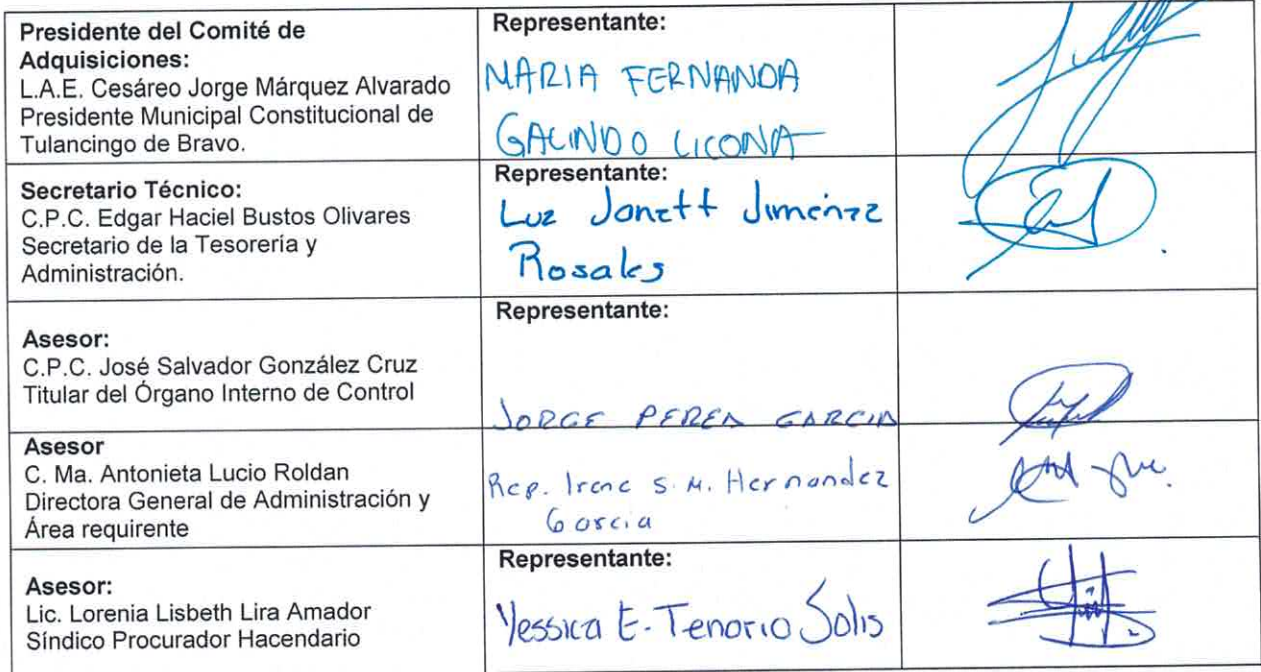 Presidente del Comité de
Adquisiciones:
L.A.E. Cesáreo Jorge Márquez Alvarado
Presidente Municipal Constitucional de
Tulancingo de Bravo.
Representante:
MARIA FERNANDA
GALINDO LICONA
Secretario Técnico:
C.P.C. Edgar Haciel Bustos Olivares
Secretario de la Tesorería y
Administración.
Representante:
Luz Janett Jiménez
Rosales
Asesor:
C.P.C. José Salvador González Cruz
Titular del Órgano Interno de Control
Representante:
JORGE PEREA GARCIA
Asesor
C. Ma. Antonieta Lucio Roldan
Directora General de Administración y
Área requirente
Rep. Irene S. M. Hernandez
Garcia
Asesor:
Lic. Lorenia Lisbeth Lira Amador
Síndico Procurador Hacendario
Representante:
Yessica E. Tenorio Solis